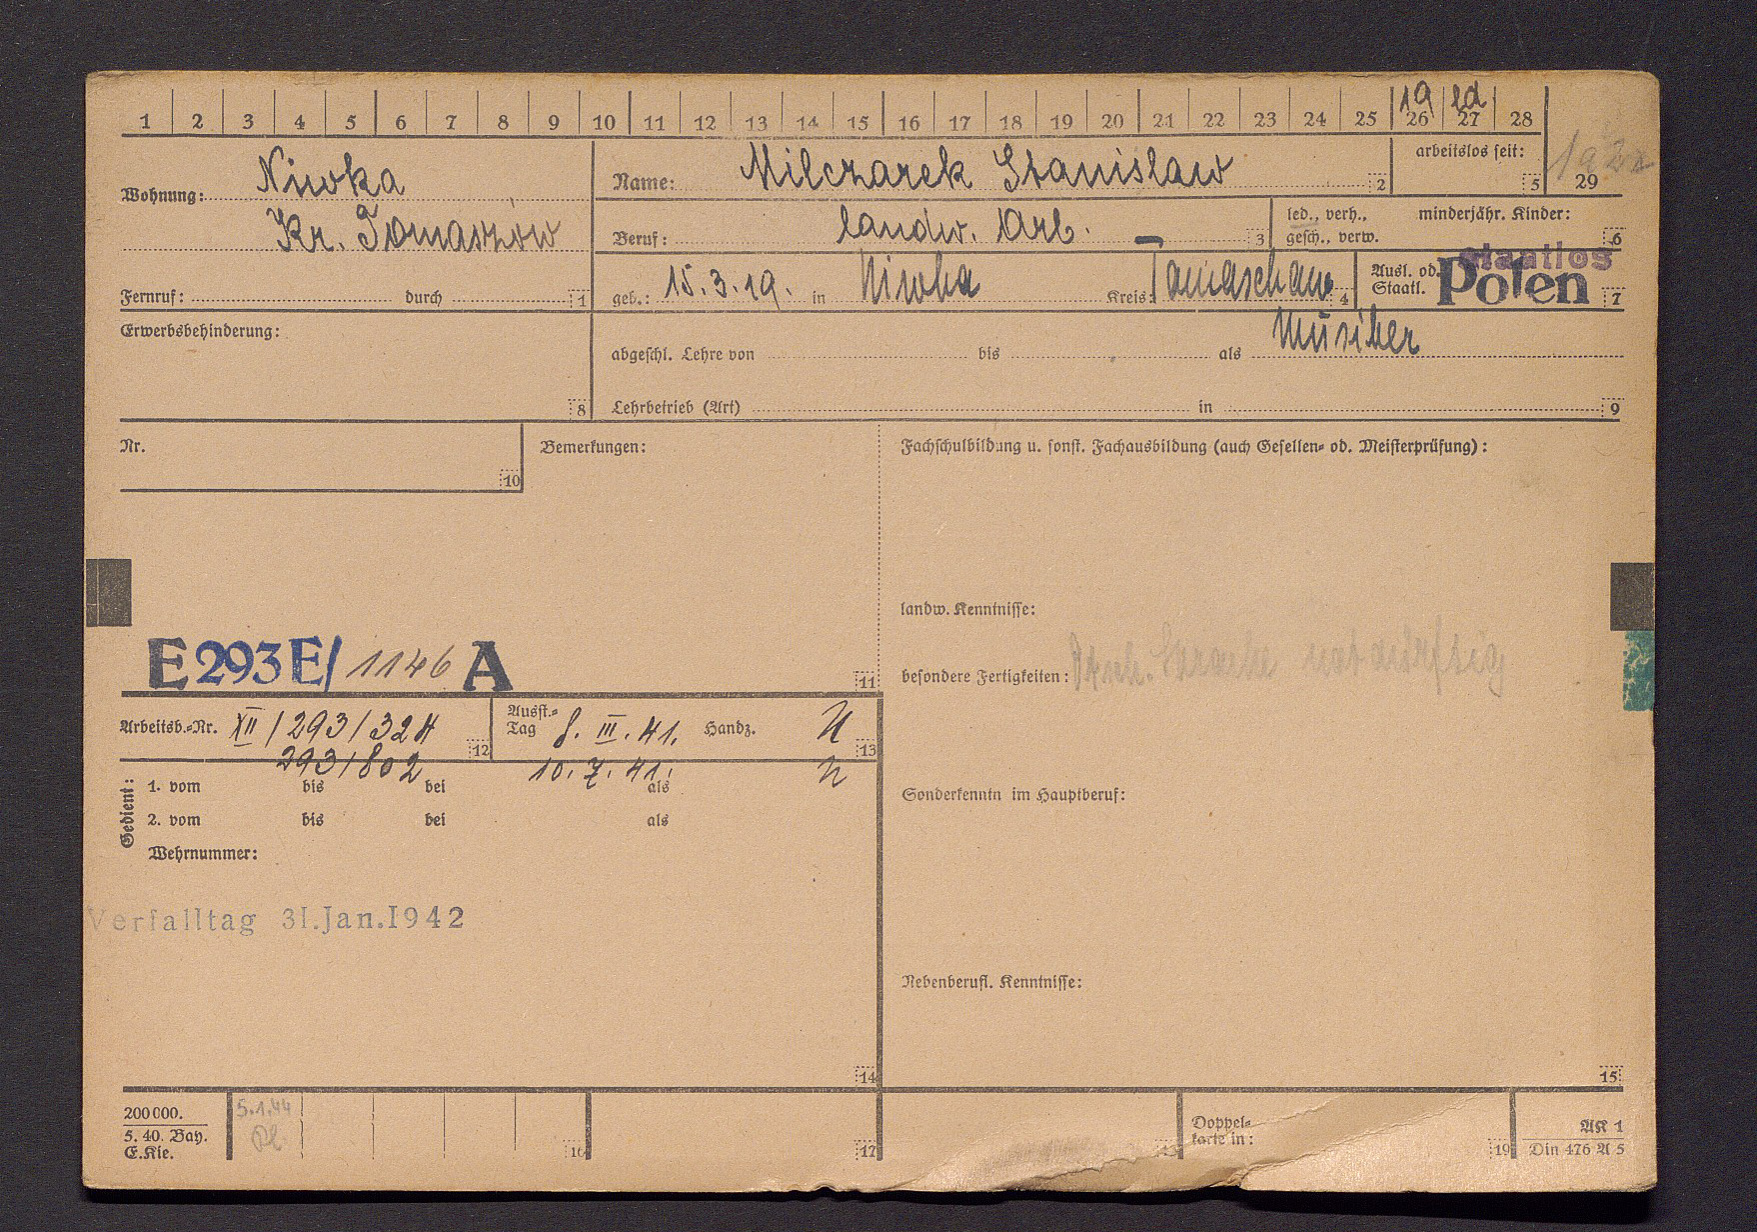 1 2 3 4 5 6 7 8 9 10 11 12 13 14 15 16 17 18 19 20 21 22 23 24 25 26 27 28
19 ld
29
Wohnung: Niwka
Kr. Tomaszów
Fernruf: durch 1
Name: Milczarek Stanislaw 2
arbeitslos seit: 5
Beruf: landw. Arb. – 3
led., verh., gesch., verw. minderjähr. Kinder: 6
geb.: 15.3.19. in Niwka Kreis: Tomaschow 4
Ausl. od. Staatl. staatlos Polen 7
Erwerbsbehinderung: 8
abgeschl. Lehre von bis als Musiker
Lehrbetrieb (Art) in 9
Nr. 10
Bemerkungen:
E 293 E/ 1146 A 11
Fachschulbildung u. sonst. Fachausbildung (auch Gesellen- od. Meisterprüfung):
landw. Kenntnisse:
besondere Fertigkeiten: Dtsch. Sprache notdürftig
Sonderkenntn im Hauptberuf:
Nebenberufl. Kenntnisse:
15
Arbeitsb.-Nr. XII/293/324 12
Ausst.-Tag 8. III. 41. Handz. 13
293/802 10.7.41.
Gedient:
1. vom bis bei als
2. vom bis bei als
Wehrnummer:
Verfalltag 31.Jan.1942
14
200000.
5. 40. Bay.
E.Kie.
5.1.44
16
17
Doppel-
karte in: 19
AK 1
Din 476 A 5